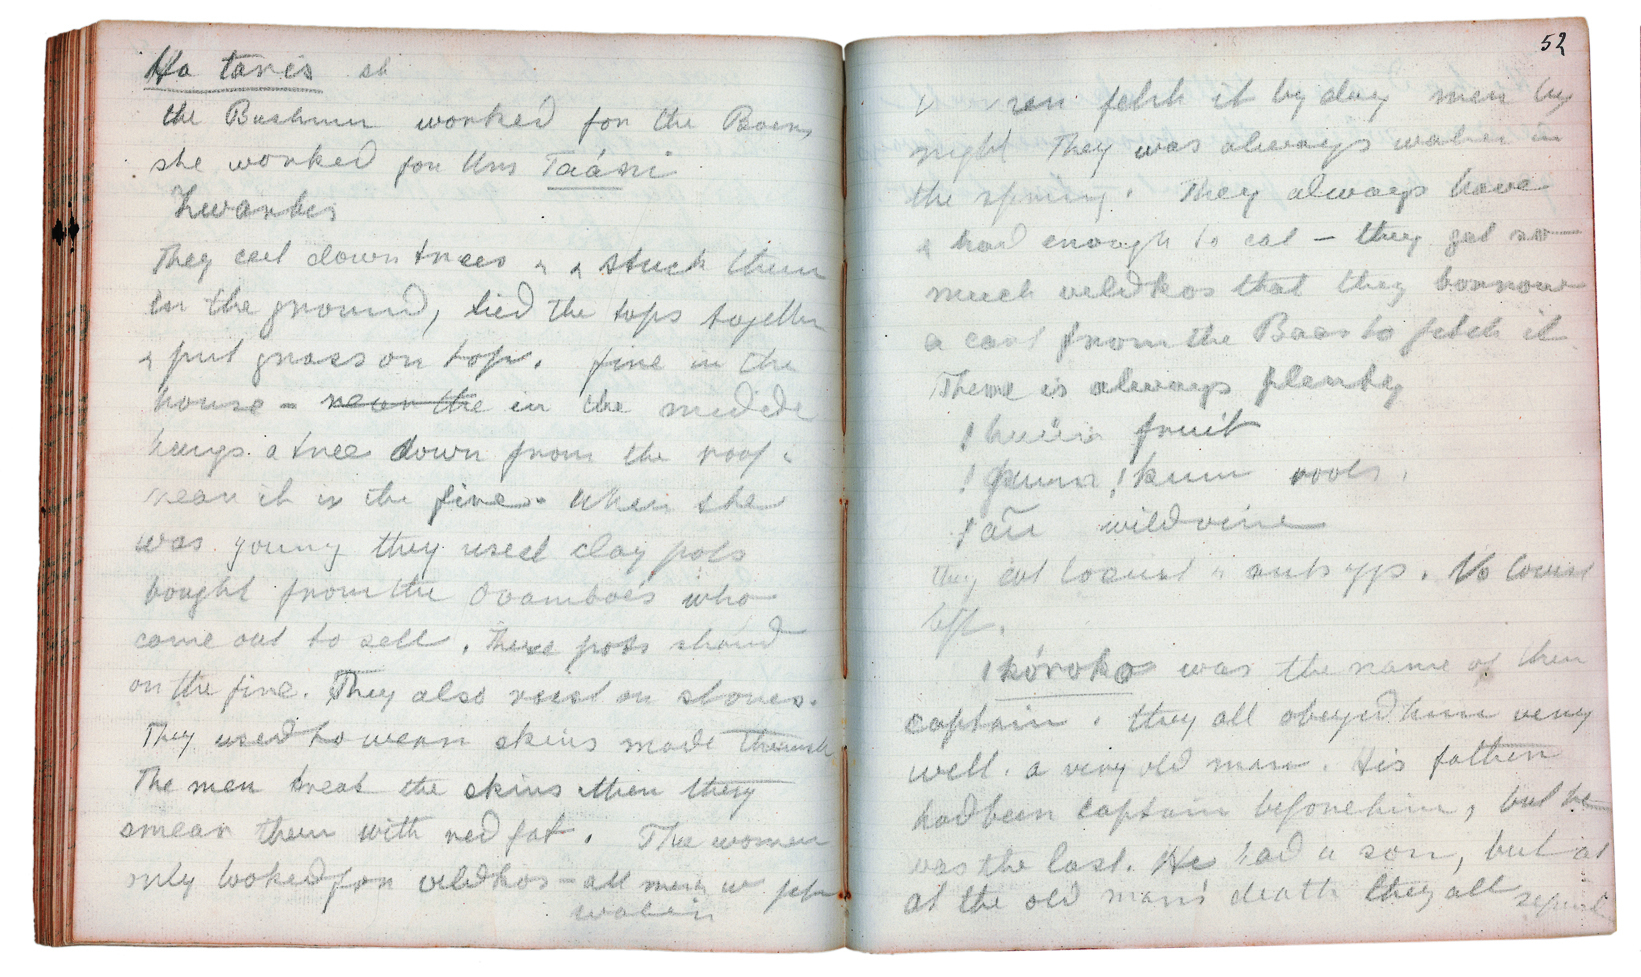 Ha taris
the Bushmen worked for the Boers
she worked for Um Taáni
Zwartes
They cut down trees & stuck them
in the ground, tied the tops together
& put grass on top. fire in the
house - near the in the middle
hangs a tree down from the roof.
near it is the fire. When she
was young they used clay pots
bought from the Ovamboes who
come out to sell. These pots stand
on the fire. They also roast on stones.
They used to wear skins made
The men treat the skins then they
smear them with red fat. The women
only looked for veldkos - all men w
water in
52
fetch it by day men by
night They was always water in
the spring. They always have
& had enough to eat - they get so
much veldkos that they borrow
a cart from the Baas to fetch it
There is always plenty
fruit
roots.
wild
They eat locust & ants eggs. No
left.
ǀkóroko was the name of their
captain. they all obeyed him very
well. a very old man. His father
had been captain before him, but he
was the last. He had a son, but at
at the old man's death they all